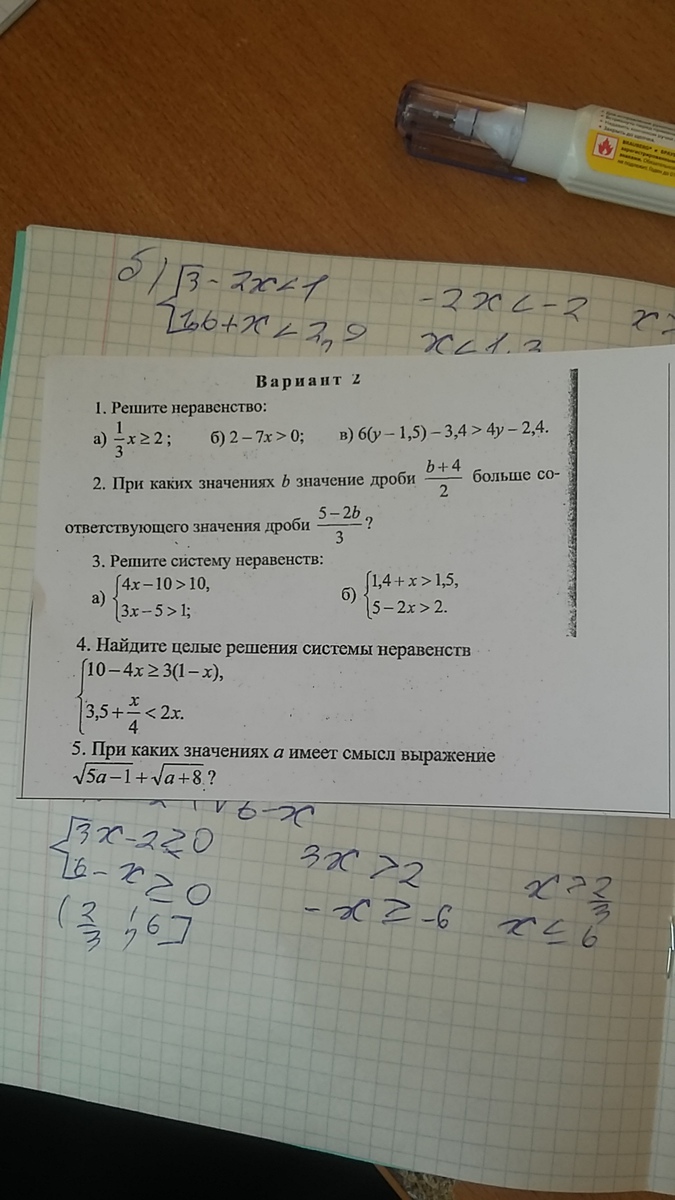 б) 3-2x<1 -2x<-2
1,6+x<2,9 x<1,3
Вариант 2
1. Решите неравенство:
а) 1/3 x ≥ 2; б) 2 – 7x > 0; в) 6(y – 1,5) – 3,4 > 4y – 2,4.
2. При каких значениях b значение дроби (b + 4)/2 больше со-
ответствующего значения дроби (5 – 2b)/3?
3. Решите систему неравенств:
а) { 4x – 10 > 10, б) { 1,4 + x > 1,5,
3x – 5 > 1; 5 – 2x > 2.
4. Найдите целые решения системы неравенств
10 – 4x ≥ 3(1 – x),
3,5 + x/4 < 2x.
5. При каких значениях a имеет смысл выражение
√(5a – 1) + √(a + 8) ?
3x-2≥0 3x>2 x>2/3
6-x≥0 -x≥-6 x≤6
(2/3; 6]